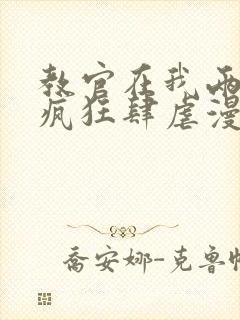 教官在我两
疯狂肆虐漫
乔安娜-克鲁